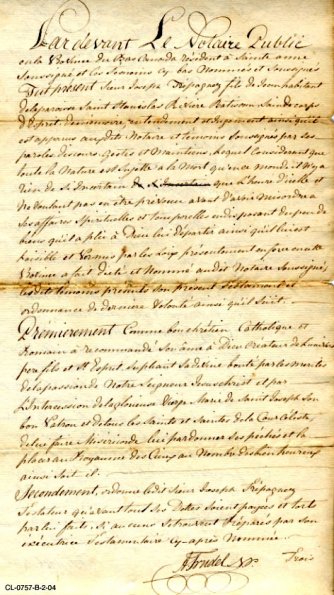 Pardevant Le Notaire Publié
en la Province du Bas Canada résident à Sainte anne
Soussigné et les témoins cy bas Nommés et Soussignés
Fut présent Sieur Joseph Trépagney fils de Jean habitant
de la paroisse Saint Stanislas Rivière Batiscan Sain de corps
d'Esprit de mémoire et de jugement ainsi qu'il
est apparus audits Notaire et témoins Soussignés par ses
paroles discours Gestes et Maintiens, Lequel Considerant que
toute la Nature est Sujette à la Mort qu'en ce monde il n'y a
rien de Si Incertain que L'heure d'icelle et
ne voulant pas en être prévenu avant d'avoir mis ordre a
ses affaires Spirituelles et temporelles en disposant du peu de
biens qu'il a plû à Dieu lui départir ainsi qu'il lui est
loisible et permis par les Loix présentement en force en cette
Province a fait dicté et Nommé audit Notaire Soussigné
les dits témoins présents Son présent testament et
ordonnance de dernière Volonté ainsi qu'il Suit.
Prémierement Comme bon chrétien Catholique et
Romain à recommandé Son ame à Dieu Créateur de L'univers
père fils et St Esprit Supliant Sa divine bonté par les merites
de la passion de Notre Seigneur Jesus christ et par
L'Intercession de la glorieuse Vierge Marie de Saint Joseph Son
bon Patron et de tous les Saints et Saintes de la Cour Céleste
de lui faire Miséricorde lui pardonner Ses péchés et la
placer au Royaume des Cieux au Nombre des bienheureux
ainsi Soit il
Secondement, ordonne ledit Sieur Joseph Trépagney
Testateur qu'avant tout Ses Dettes Soient payées et torts
par lui faits Si aucuns Se trouvent Réparés par Son
exécutrice Testamentaire cy-après Nommée
Trudel NP Trois
CL-0757-B-2-04